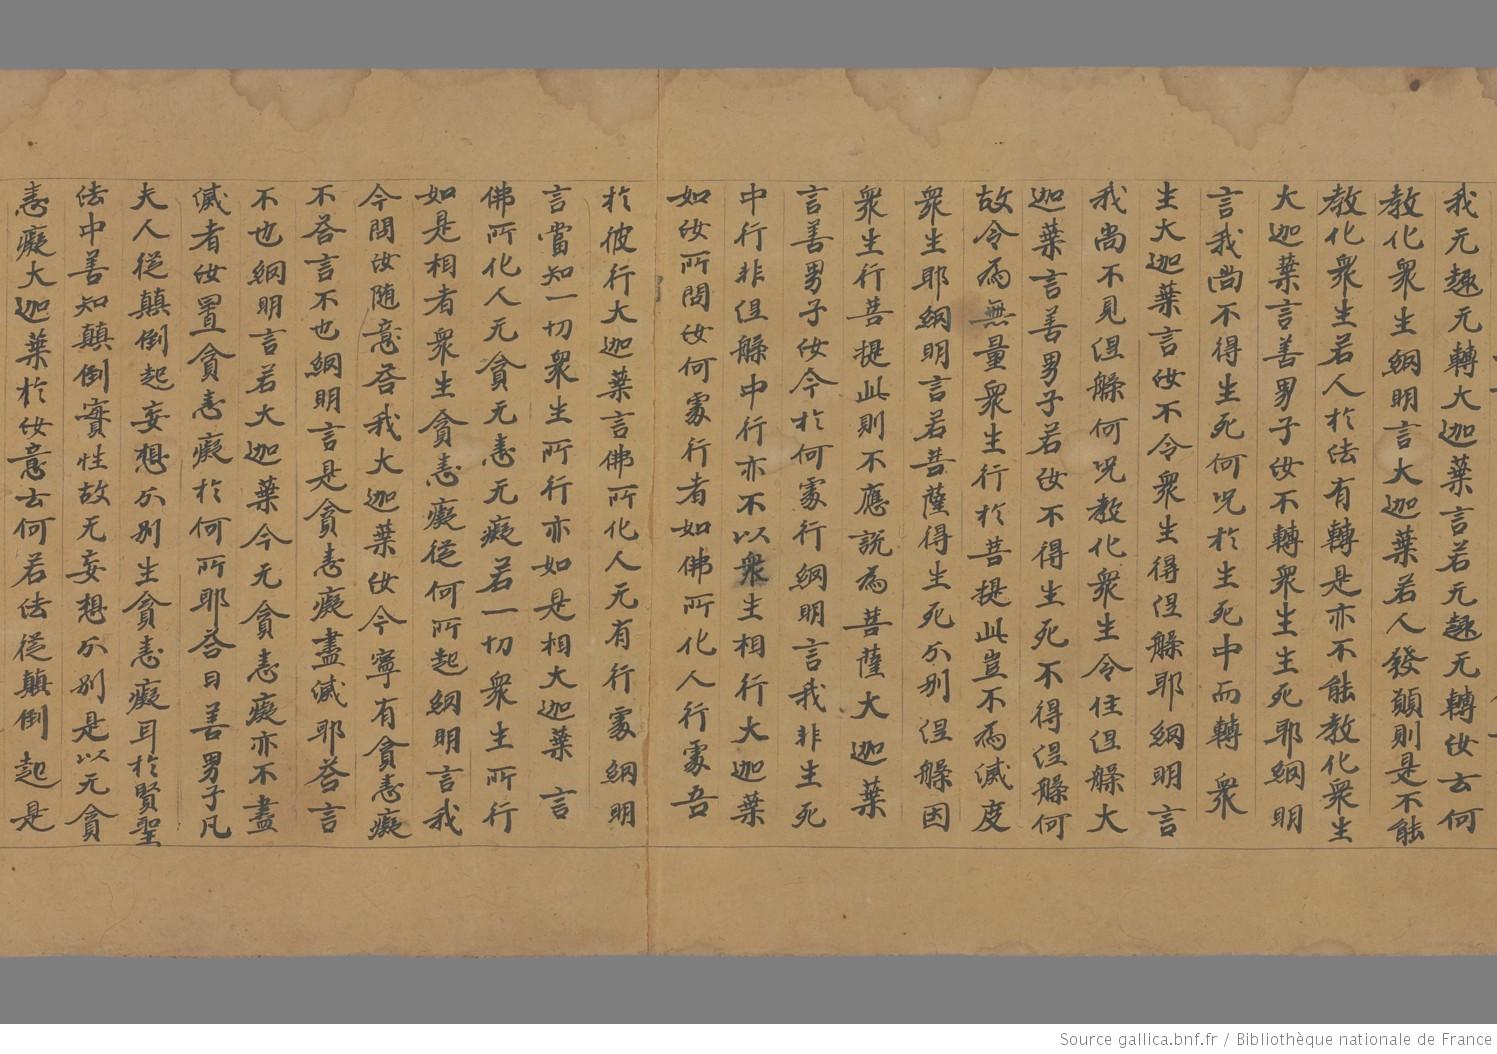 我元趣元轉大迦葉言若元趣元轉汝云何
教化衆生網明言大迦葉若人發願則是不能
教化衆生若人於法有轉是亦不能教化衆生
大迦葉言善男子汝不轉衆生生死耶網明
言我尚不得生死何况於生死中而轉衆
生大迦葉言汝不令衆生得涅槃耶網明言
我尚不見涅槃何况教化衆生令住涅槃大
迦葉言善男子若汝不得生死不得涅槃何
故今為無量衆生行於菩提此豈不為滅度
衆生耶網明言若菩薩得生死分别涅槃因
衆生行菩提此則不應說為菩薩大迦葉
言善男子汝今於何處行網明言我非生死
中行非涅槃中行亦不以衆生相行大迦葉
如汝所問汝何處行者如佛所化人行處吾
於彼行大迦葉言佛所化人元有行處網明
言當知一切衆生所行亦如是相大迦葉言
佛所化人元貪元恚元癡若一切衆生所行
如是相者衆生貪恚癡從何所起網明言我
今問汝随意荅我大迦葉汝今寧有貪恚癡
不荅言不也網明言是貪恚癡盡滅耶荅言
不也網明言若大迦葉今元貪恚癡亦不盡
滅者汝置貪恚癡於何所耶荅曰善男子凡
夫人從顛倒起妄想分别生貪恚癡耳於賢聖
法中善知顛倒實性故无妄想分别是以元貪
恚癡大迦葉於汝意云何若法從顛倒起是
Source gallica.bnf.fr / Bibliothèque nationale de France